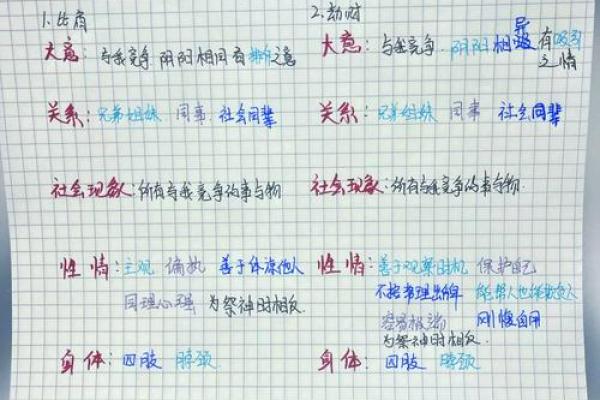 1.比肩
大意：与我竞争 阴阳相同 有排斥之意
关系：兄弟姐妹 同事 社会同辈
社会现象：所有与我竞争的事与物
性情：主观 偏执 善于体谅他人
同理心理 为忌神时相反
身体：四肢 脖颈
2.劫财
大意：与我竞争 阴阳相异 有吸引
之情
关系：兄弟姐妹 同事 社会同辈
社会现象：所有与我竞争的事与物
性情：善于观察时机 保护自己
不按常理出牌 能帮人也能欺负人
容易极端 刚愎自用
为忌神时相反
身体：四肢 脖颈